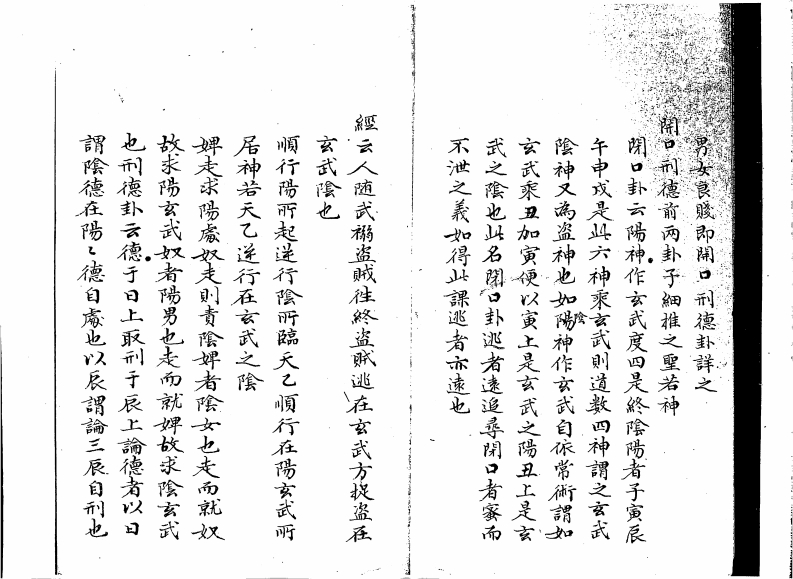 男女良賤即閉口刑德卦詳之
閉口刑德前兩卦子細推之聖若神
閉口卦云陽神作玄武度四是終陰陽者子寅辰
午申戌是此六神乘玄武則道數四神謂之玄武
陰神又為盜神也如陽陰神作玄武自依常術謂如
玄武乘丑加寅便以寅上是玄武之陽丑上是玄
武之陰也此名閉口卦逃者遠追尋閉口者密而
不泄之義如得此課逃者亦遠也
經云人隨武禍盜賊往終盜賊逃在玄武方捉盜在
玄武陰也
順行陽所起逆行陰所臨天乙順行在陽玄武所
居神若天乙逆行在玄武之陰
婢走求陽處奴走則責陰婢者陰女也走而就奴
故求陽玄武奴者陽男也走而就婢故求陰玄武
也刑德卦云德于日上取刑于辰上論德者以日
謂陰德在陽〻德自處也以辰謂論三辰自刑也